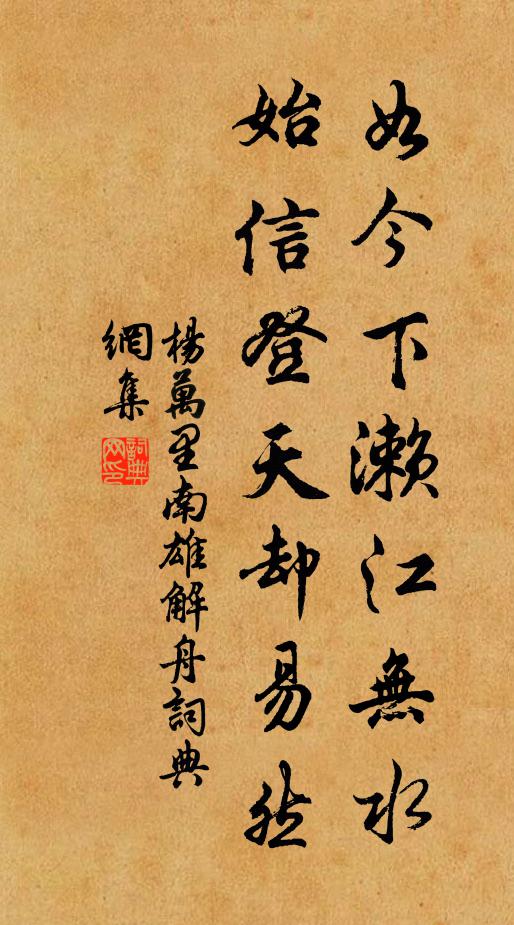 如今下濑江無水
始信登天却易然
楊萬里南雄解舟詞典
網集
詞典
网印